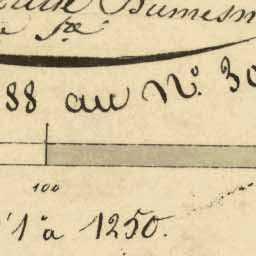 Dumesn
88 au N.º 30
100
1 à 1250.